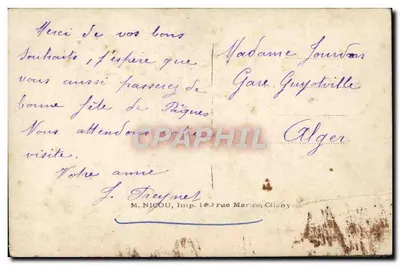 Merci de vos bons
souhaits, j'espère que
vous aussi passerez de
bonne fête de Pâques
Nous attendons votre
visite.
Votre amie
J. Freynet
Madame Jourdas
Gare Guyotville
Alger
CPARPHIL
M. NICOU, Imp. rue Martre, Clichy